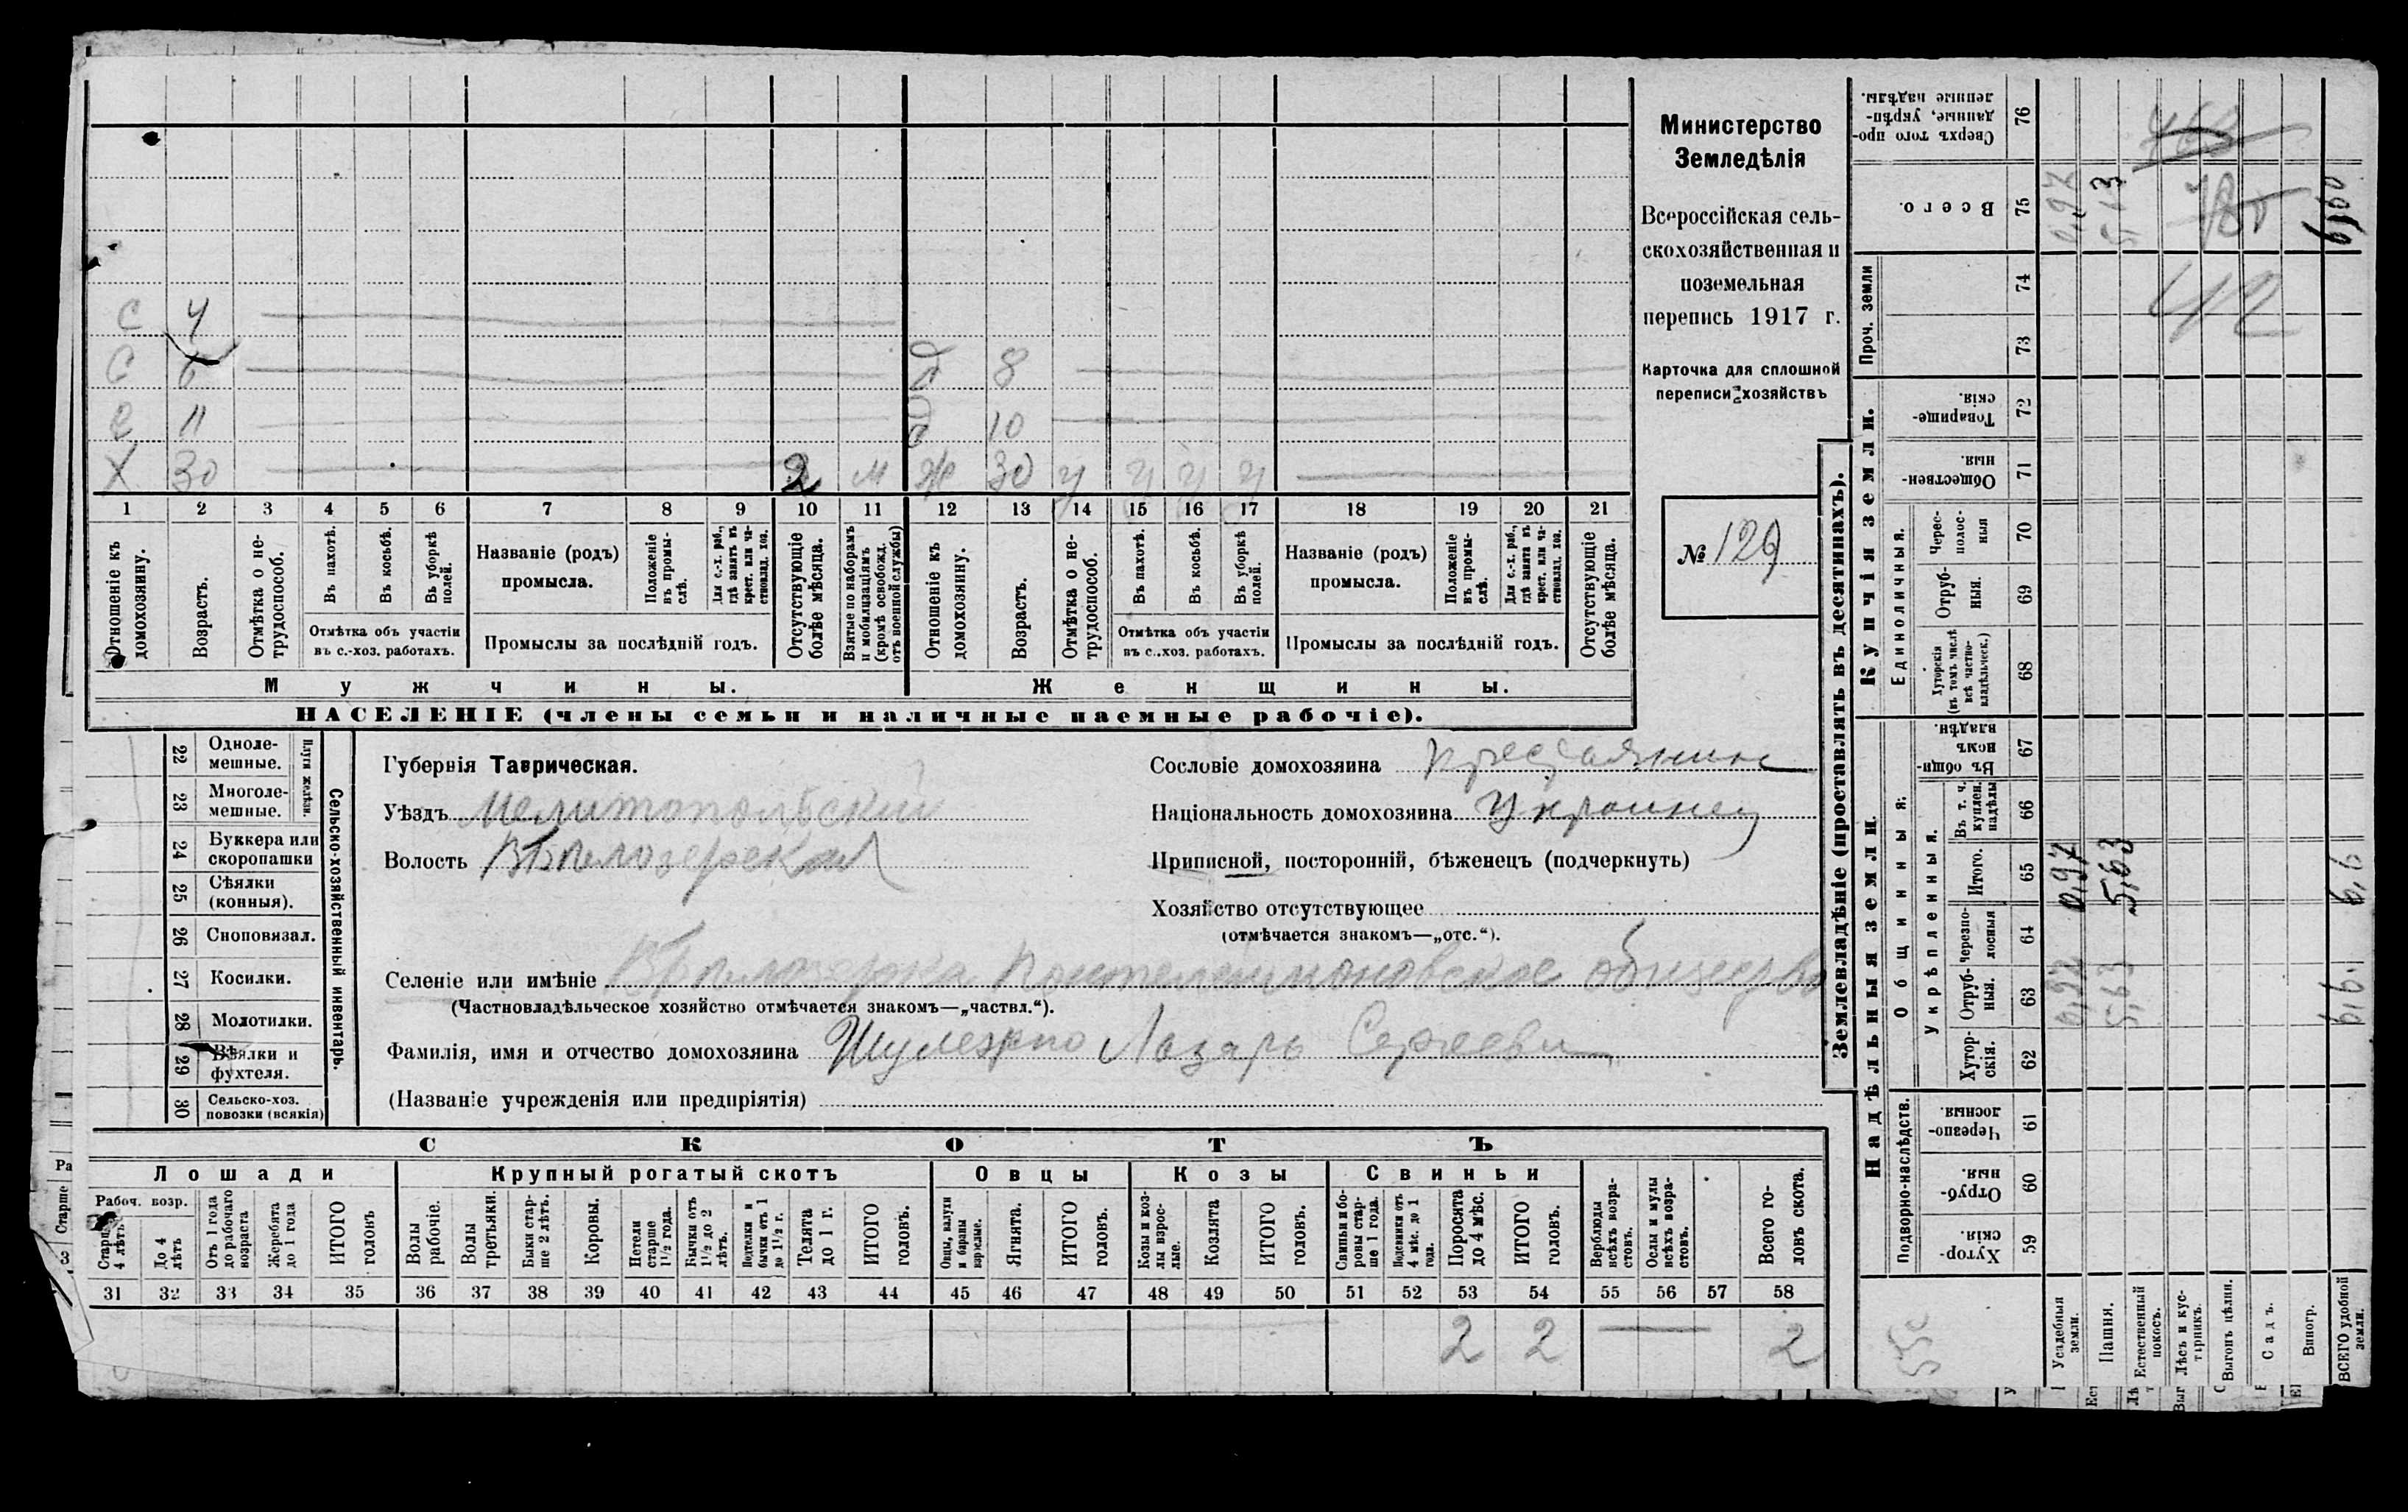 С 4
С 6 д 8
С 11 д 10
Х 30 2 м Ж 30 у у у у
1 2 3 4 5 6 7 8 9 10 11 12 13 14 15 16 17 18 19 20 21
Отношеніе къ домохозяину.
Возрастъ.
Отмѣтка о не-трудоспособ.
Въ пахотѣ.
Въ косьбѣ.
Въ уборкѣ полей.
Отмѣтка объ участіи
въ с.-хоз. работахъ.
Названіе (родъ)
промысла.
Положеніе въ промы-слѣ.
Для с.-х. раб., гдѣ занятъ въ крест. или ча-стновлад. хоз.
Промыслы за послѣдній годъ.
Отсутствующіе болѣе мѣсяца.
Взятые по наборамъ и мобилизаціямъ (кромѣ освобожд. отъ военной службы)
Отношеніе къ домохозяину.
Возрастъ.
Отмѣтка о не-трудоспособ.
Въ пахотѣ.
Въ косьбѣ.
Въ уборкѣ полей.
Отмѣтка объ участіи
въ с.-хоз. работахъ.
Названіе (родъ)
промысла.
Положеніе въ промы-слѣ.
Для с.-х. раб., гдѣ занята въ крест. или ча-стновлад. хоз.
Промыслы за послѣдній годъ.
Отсутствующіе болѣе мѣсяца.
Мужчины.
Женщины.
НАСЕЛЕНІЕ (члены семьи и наличные наемные рабочіе).
Министерство
Земледѣлія
Всероссійская сель-
скохозяйственная и
поземельная
перепись 1917 г.
Карточка для сплошной
переписи хозяйствъ
№ 129
22 Одноле-
мешные.
23 Многоле-
мешные.
Плуги желѣзн.
24 Буккера или
скоропашки
25 Сѣялки
(конныя).
26 Сноповязал.
27 Косилки.
28 Молотилки.
29 Вѣялки и
фухтеля.
30 Сельско-хоз.
повозки (всякія)
Сельско-хозяйственный инвентарь.
Губернія Таврическая.
Уѣздъ Мелитопольскій
Волость В Бѣлозерская
Сословіе домохозяина крестьянин
Національность домохозяина Украинец
Приписной, посторонній, бѣженецъ (подчеркнуть)
Хозяйство отсутствующее
(отмѣчается знакомъ—„отс.“).
Селеніе или имѣніе В Бѣлозерка Пантелеимоновское общество
(Частновладѣльческое хозяйство отмѣчается знакомъ—„частвл.“).
Фамилія, имя и отчество домохозяина Лазарь Сергеевич
(Названіе учрежденія или предпріятія)
СКОТЪ
Лошади
Крупный рогатый скотъ
Овцы
Козы
Свиньи
Рабоч. возр.
Старше 4 лѣтъ
До 4 лѣтъ
Отъ 1 года до рабочаго возраста
Жеребята до 1 года
ИТОГО головъ
Волы рабочіе.
Волы третьяки.
Быки стар-ше 2 лѣтъ.
Коровы.
Нетели старше 1½ года.
Бычки отъ 1½ до 2 лѣтъ.
Подтелки и бычки отъ 1 до 1½ г.
Телята до 1 г.
ИТОГО головъ.
Овцы, валухи и бараны взрослые.
Ягнята.
ИТОГО головъ.
Козы и коз-лы взрос-лые.
Козлята
ИТОГО головъ.
Свиньи и бо-ровы стар-ше 1 года.
Подсвинки отъ 4 мѣс. до 1 года.
Поросята до 4 мѣс.
ИТОГО головъ.
Верблюды всѣхъ возра-стовъ.
Ослы и мулы всѣхъ возра-стовъ.
Всего го-ловъ скота.
31 32 33 34 35 36 37 38 39 40 41 42 43 44 45 46 47 48 49 50 51 52 53 54 55 56 57 58
2 2 2
Землевладѣніе (проставлять въ десятинахъ).
Надѣльныя земли.
Купчія земли.
Проч. земли
Подворно-наслѣдств.
Общинныя.
Укрѣпленныя.
Единоличныя.
Сверхъ того про-данные, укрѣп-ленные надѣлы. 76
Всего. 75 0,97 5,13 6,60
74
73
Товарище-скія. 72
Обществен-ныя. 71
Черес-полос-ныя 70
Отруб-ныя. 69
Хуторскія (въ томъ числѣ всѣ частно-владѣльческ.) 68
Въ общи-номъ владѣн. 67
Въ т. ч. куплен. надѣлы 66
Итого. 65 0,97 5,63 6,6
Черезпо-лосныя 64
Отруб-ныя. 63 0,92 5,63 6,6
Хутор-скія. 62
Черезпо-лосныя. 61
Отруб-ныя. 60
Хутор-скія. 59
763
780
42
Усадебныя земли.
Пашня.
Естественный покосъ.
Лѣсъ и кус-тарникъ.
Выгонъ цѣлин.
Садъ.
Виногр.
ВСЕГО удобной земли.
Ра
Старше